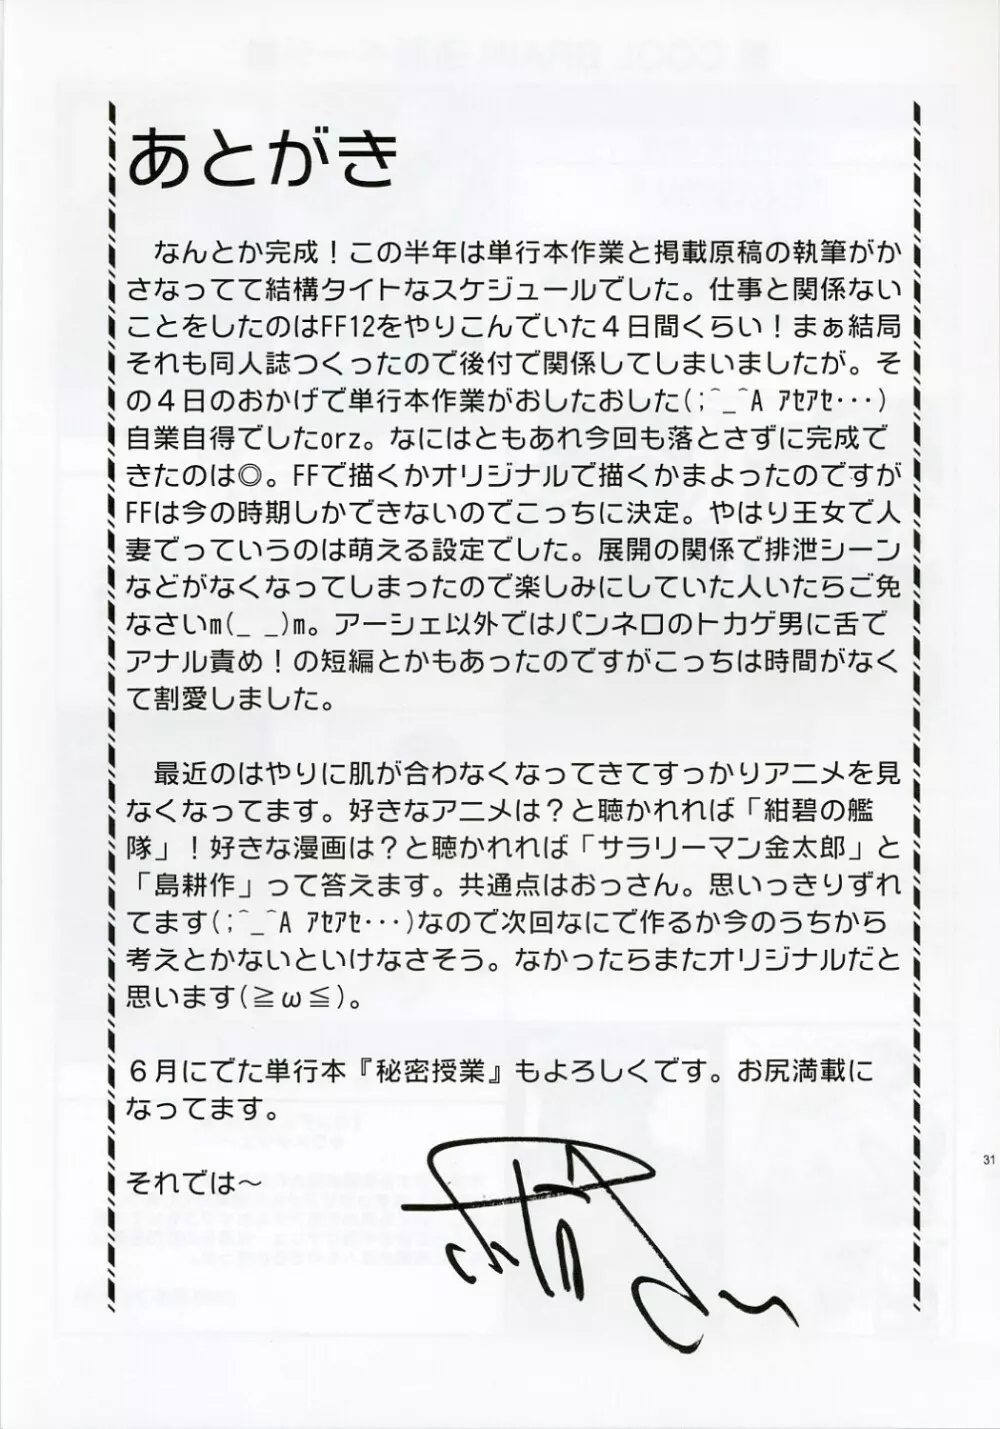 あとがき
　なんとか完成！この半年は単行本作業と掲載原稿の執筆がか
さなってて結構タイトなスケジュールでした。仕事と関係ない
ことをしたのはFF12をやりこんでいた４日間くらい！まぁ結局
それも同人誌つくったので後付で関係してしまいましたが。そ
の４日のおかげで単行本作業がおしたおした(;^_^A ｱｾｱｾ･･･)
自業自得でしたorz。なにはともあれ今回も落とさずに完成で
きたのは◎。FFで描くかオリジナルで描くかまよったのですが
FFは今の時期しかできないのでこっちに決定。やはり王女で人
妻でっていうのは萌える設定でした。展開の関係で排泄シーン
などがなくなってしまったので楽しみにしていた人いたらご免
なさいm(_ _)m。アーシェ以外ではパンネロのトカゲ男に舌で
アナル責め！の短編とかもあったのですがこっちは時間がなく
て割愛しました。
　最近のはやりに肌が合わなくなってきてすっかりアニメを見
なくなってます。好きなアニメは？と聴かれれば「紺碧の艦
隊」！好きな漫画は？と聴かれれば「サラリーマン金太郎」と
「島耕作」って答えます。共通点はおっさん。思いっきりずれ
てます(;^_^A ｱｾｱｾ･･･)なので次回なにで作るか今のうちから
考えとかないといけなさそう。なかったらまたオリジナルだと
思います(≧ω≦)。
６月にでた単行本『秘密授業』もよろしくです。お尻満載に
なってます。
それでは～
31